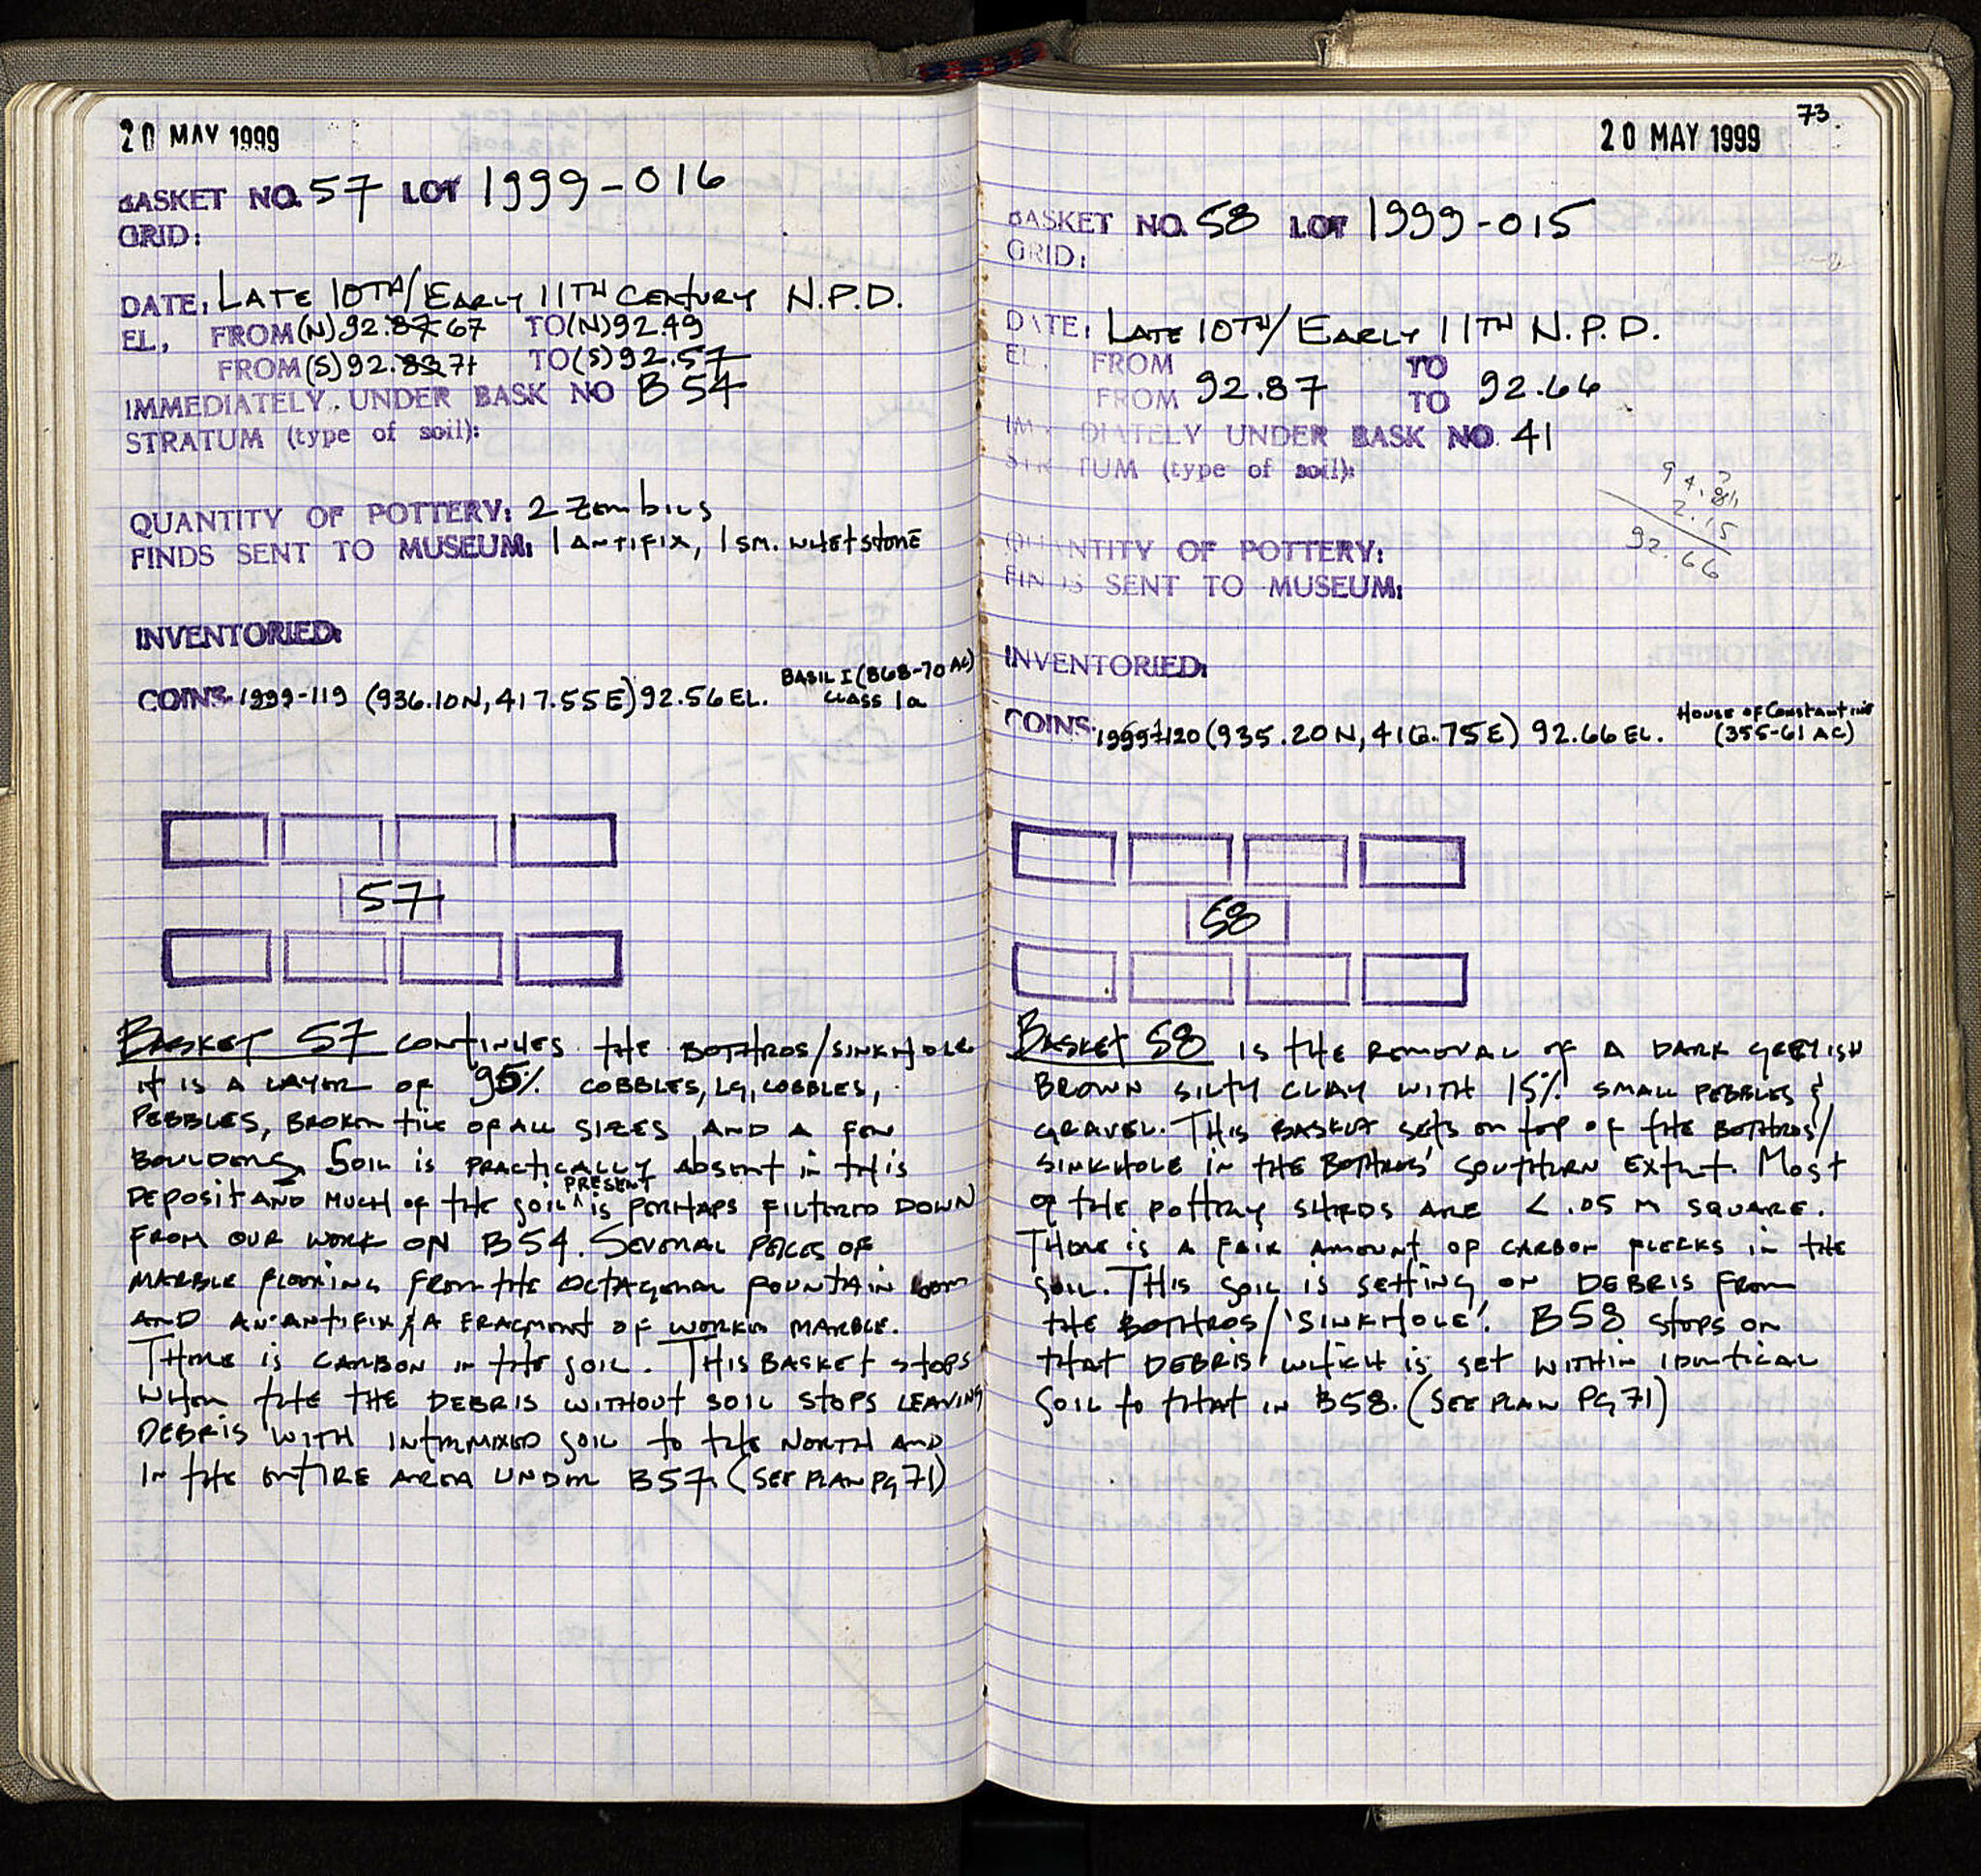 20 MAY 1999
BASKET NO. 57 LOT 1999-016
GRID:
DATE, LATE 10TH/EARLY 11TH CENTURY N.P.D.
EL, FROM (N) 92.87 67 TO (N) 92.49
FROM (S) 92.83 71 TO (S) 92.57
IMMEDIATELY UNDER BASK NO B 54
STRATUM (type of soil):
QUANTITY OF POTTERY: 2 Zembius
FINDS SENT TO MUSEUM: 1 ANTIFIX, 1 SM. WHETSTONE
INVENTORIED:
COINS 1999-119 (936.10N, 417.55E) 92.56 EL. BASIL I (868-70 AC)
CLASS 1a
57
BASKET 57 CONTINUES THE BOTHROS/SINKHOLE
IT IS A LAYER OF 95% COBBLES, LG, COBBLES,
PEBBLES, BROKEN TILE OF ALL SIZES AND A FEW
BOULDERS. SOIL IS PRACTICALLY ABSENT IN THIS
DEPOSIT AND MUCH OF THE SOIL ^PRESENT IS PERHAPS FILTERED DOWN
FROM OUR WORK ON B54. SEVERAL PEICES OF
MARBLE FLOORING FROM THE OCTAGONAL FOUNTAIN
AND AN ANTIFIX & A FRAGMENT OF WORKED MARBLE.
THERE IS CARBON IN THE SOIL. THIS BASKET STOPS
WHEN THE THE DEBRIS WITHOUT SOIL STOPS LEAVING
DEBRIS WITH INTERMIXED SOIL TO THE NORTH AND
IN THE ENTIRE AREA UNDER B57. (SEE PLAN PG 71)
73.
20 MAY 1999
BASKET NO. 58 LOT 1999-015
GRID:
DATE: LATE 10TH/EARLY 11TH N.P.D.
EL. FROM TO
FROM 92.87 TO 92.66
IMMEDIATELY UNDER BASK NO. 41
STRATUM (type of soil):
94.81
2.15
92.66
QUANTITY OF POTTERY:
FINDS SENT TO MUSEUM:
INVENTORIED:
COINS: 1999-120 (935.20N, 416.75E) 92.66 EL. HOUSE OF CONSTANTINE
(355-61 AC)
58
BASKET 58 IS THE REMOVAL OF A DARK GREYISH
BROWN SILTY CLAY WITH 15% SMALL PEBBLES &
GRAVEL. THIS BASKET SETS ON TOP OF THE BOTHROS/
SINKHOLE IN THE BOTHROS' SOUTHERN EXTENT. MOST
OF THE POTTERY SHERDS ARE < .05 M SQUARE.
THERE IS A FAIR AMOUNT OF CARBON FLECKS IN THE
SOIL. THIS SOIL IS SETTING ON DEBRIS FROM
THE BOTHROS/'SINKHOLE'. B58 STOPS ON
THAT DEBRIS WHICH IS SET WITHIN IDENTICAL
SOIL TO THAT IN B58. (SEE PLAN PG 71)